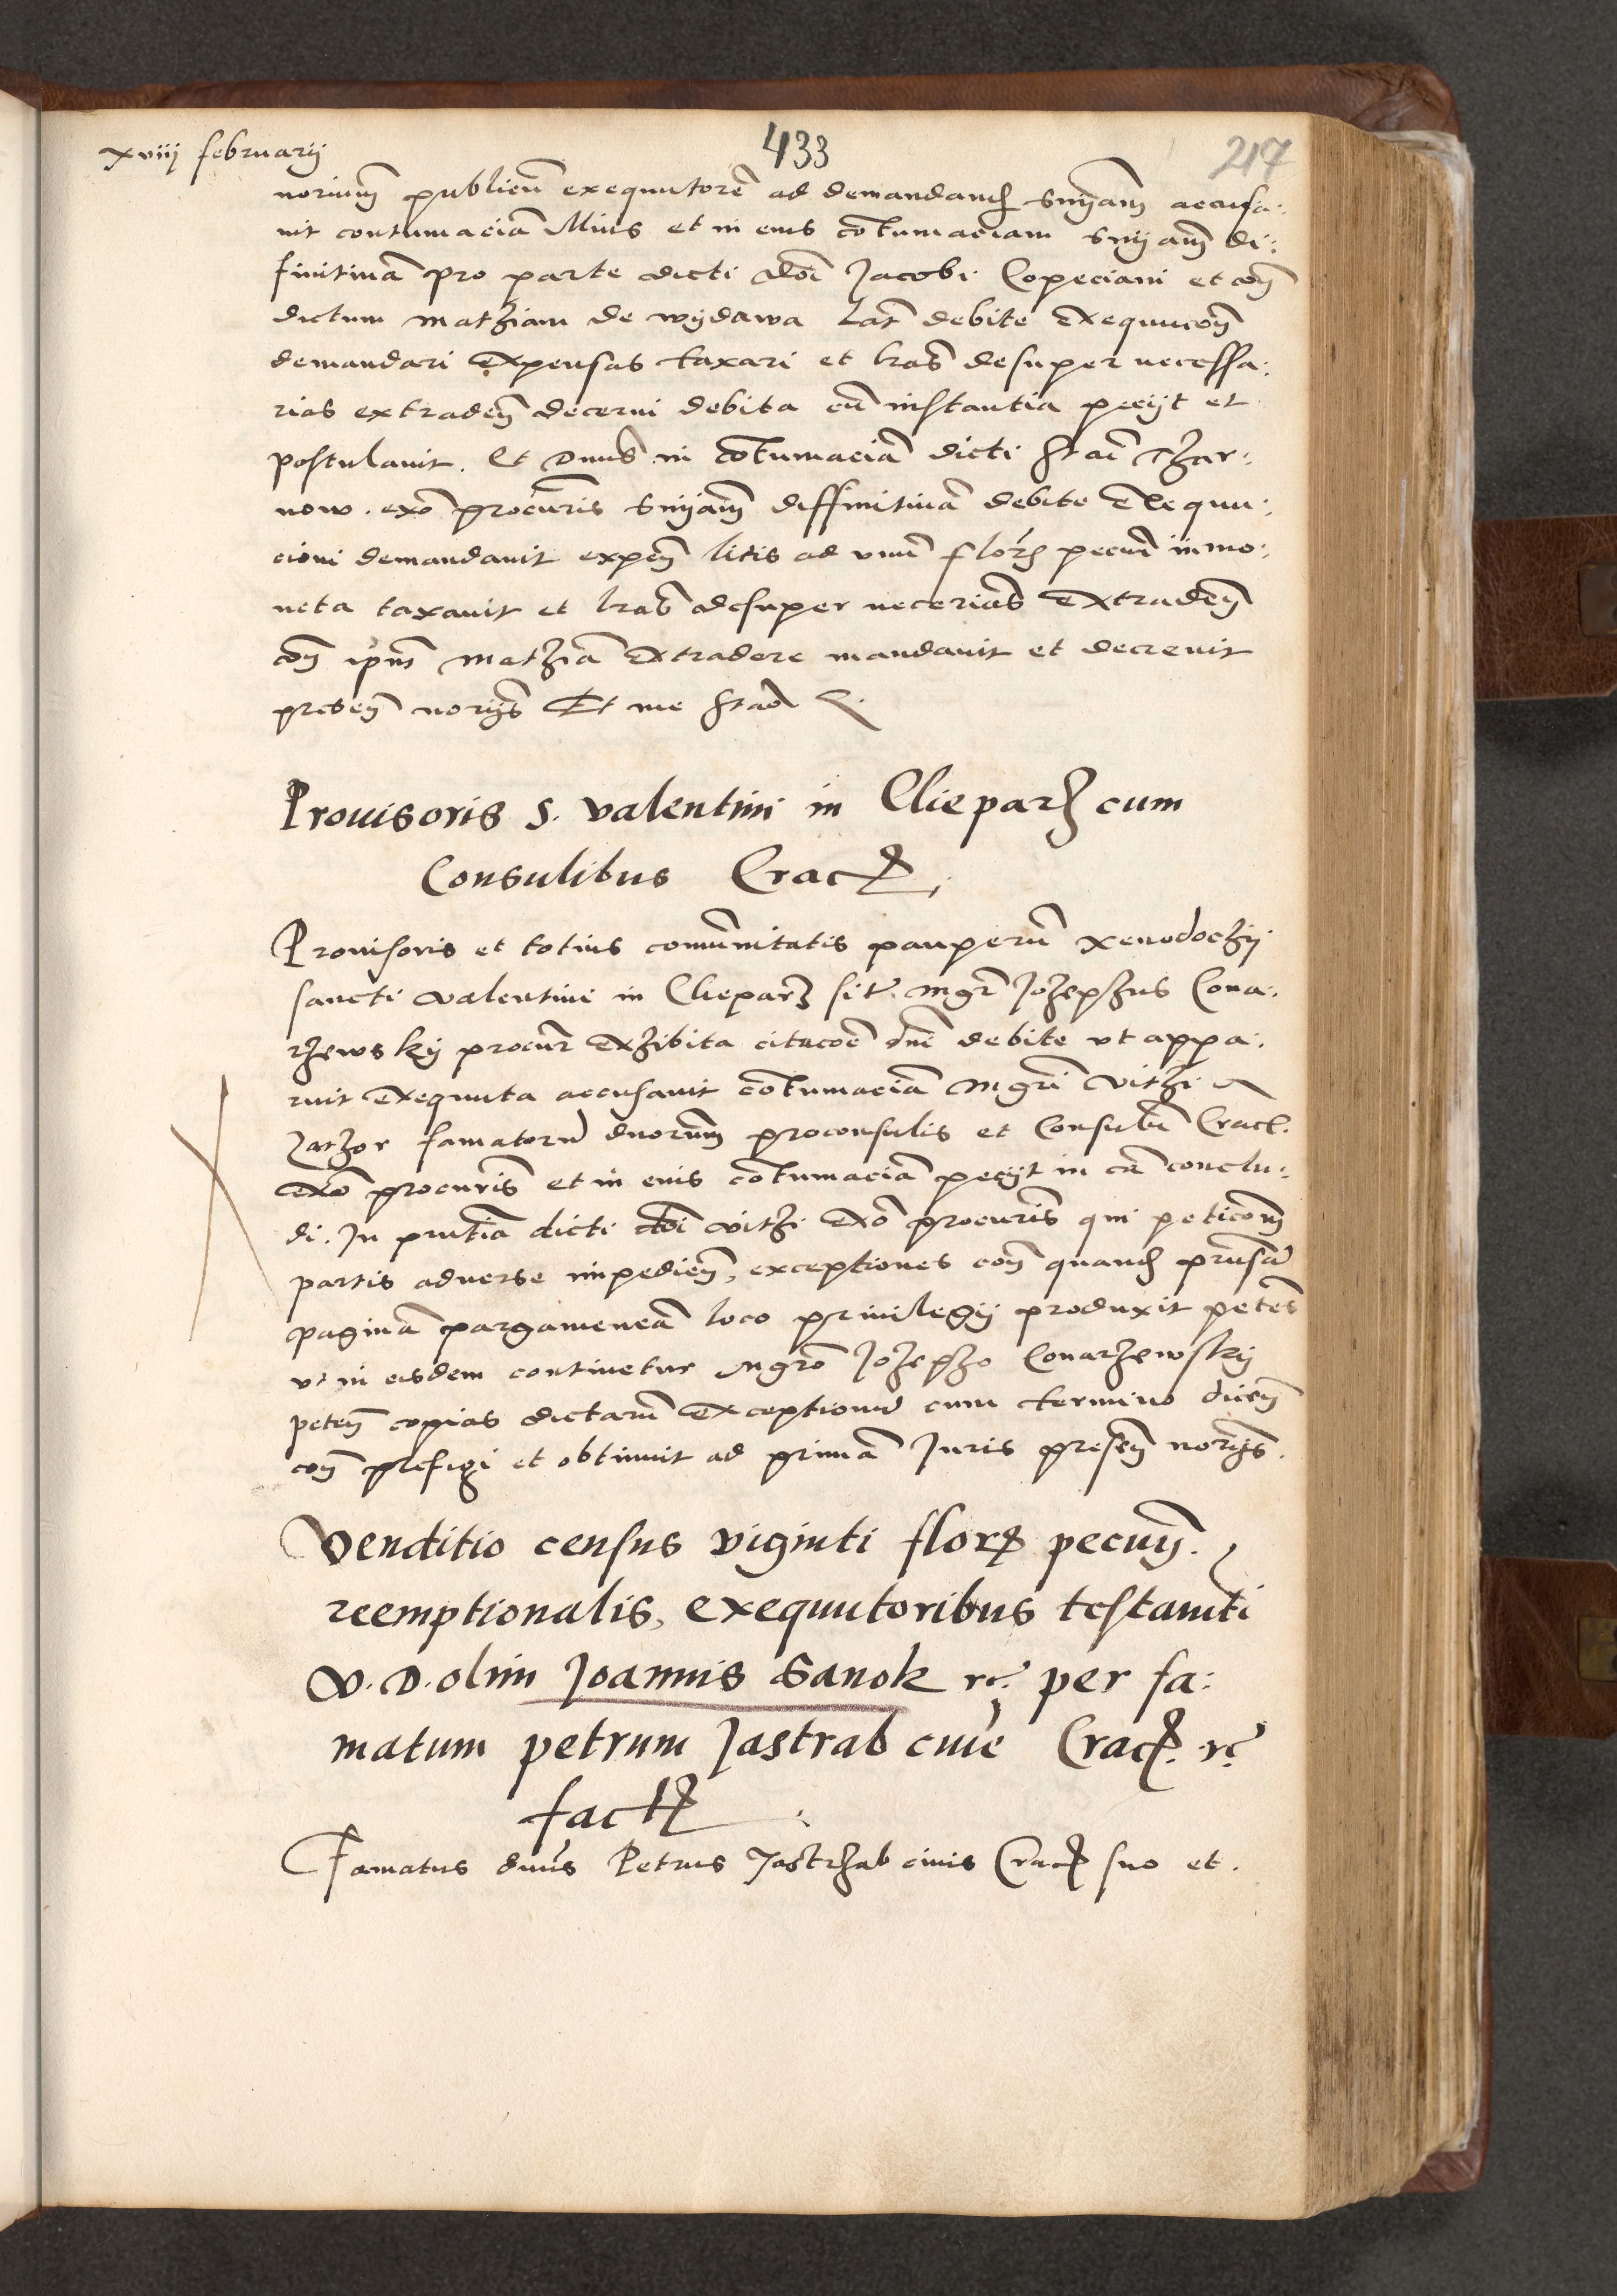 xviij februarij
433
217
norium publicū exequutorē ad demandand snīam accusa:
uit contumaciā illius et in eius cōtumaciam snīam di:
finitiuā pro parte dicti dnī Jacobi Copeciani et con
dictum mathiam de wydawa lat debite exequucon
demandari expensas taxari et lras desuper necessa:
rias extraden decerni debita cū instantia pecijt et
postulauit. Et Dnus in cōtumaciā dicti Stani Char:
now. exō procuris snīam diffinitiuā debite exequu:
cioni demandauit expen litis ad vnū flor pecun in mo:
neta taxauit et lras desuper necerias extraden
con ipm mathiā extradere mandauit et decreuit
presen norijs Et me Stao
Prouisoris S. Valentini in Clieparz cum
Consulibus Crac
Prouisoris et totius comunitatis pauperū xenodochij
sancti valentini in Clieparz sit mgr Johephus Cona:
rzewsky procur exhibita citacoē dnī debite vt appa:
ruit exequuta accusauit cōtumaciā mgri vithi
Zathor famatorū dnorum proconsulis et Consulū Crac.
exō procuris et in eius cōtumaciā pecijt in cā conclu:
di. In pntia dicti dnī vithi exō procuris qui peticom
partis aduerse impedien, exceptiones con quand pnsā
paginā pargameneā loco priuilegij produxit petes
vt in eisdem continetur Mgro Johepho Conarzewsky
peten copias dictarū exceptionū cum termino dicen
con prefigi et obtinuit ad primā Juris presen norijs.
Venditio census viginti flor pecun.
reemptionalis, exequutoribus testamti
V. D. olim Joannis Sanok rc. per fa:
matum petrum Jastrab ciuē Crac. rc
fact
Famatus dnus Petrus Jastrzab ciuis Crac suo et.